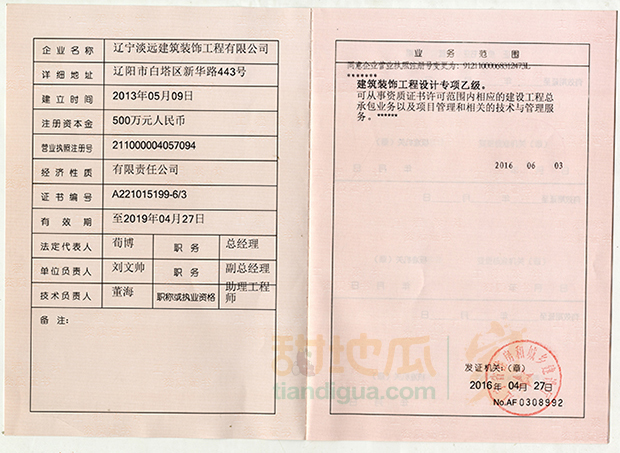 企业名称 辽宁淡远建筑装饰工程有限公司
详细地址 辽阳市白塔区新华路443号
建立时间 2013年05月09日
注册资本金 500万元人民币
营业执照注册号 211000004057094
经济性质 有限责任公司
证书编号 A221015199-6/3
有效期 至2019年04月27日
法定代表人 荀博 职务 总经理
单位负责人 刘文帅 职务 副总经理
技术负责人 董海 职称或执业资格 助理工程师
备注：
业务范围
同意企业营业执照注册号变更为：912110000683124
*******
建筑装饰工程设计专项乙级。
可从事资质证书许可范围内相应的建设工程总
承包业务以及项目管理和相关的技术与管理服
务。******
2016 06 03
发证机关：（章）
2016年 04月 27日
No.AF 0308992
甜地瓜
tiandigua.com